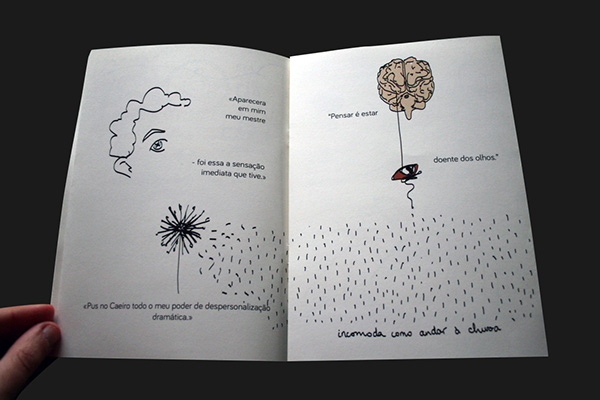 «Aparecera
em mim
meu mestre
- foi essa a sensação
imediata que tive.»
«Pus no Caeiro todo o meu poder de despersonalização
dramática.»
"Pensar é estar
doente dos olhos."
incomoda como andar à chuva